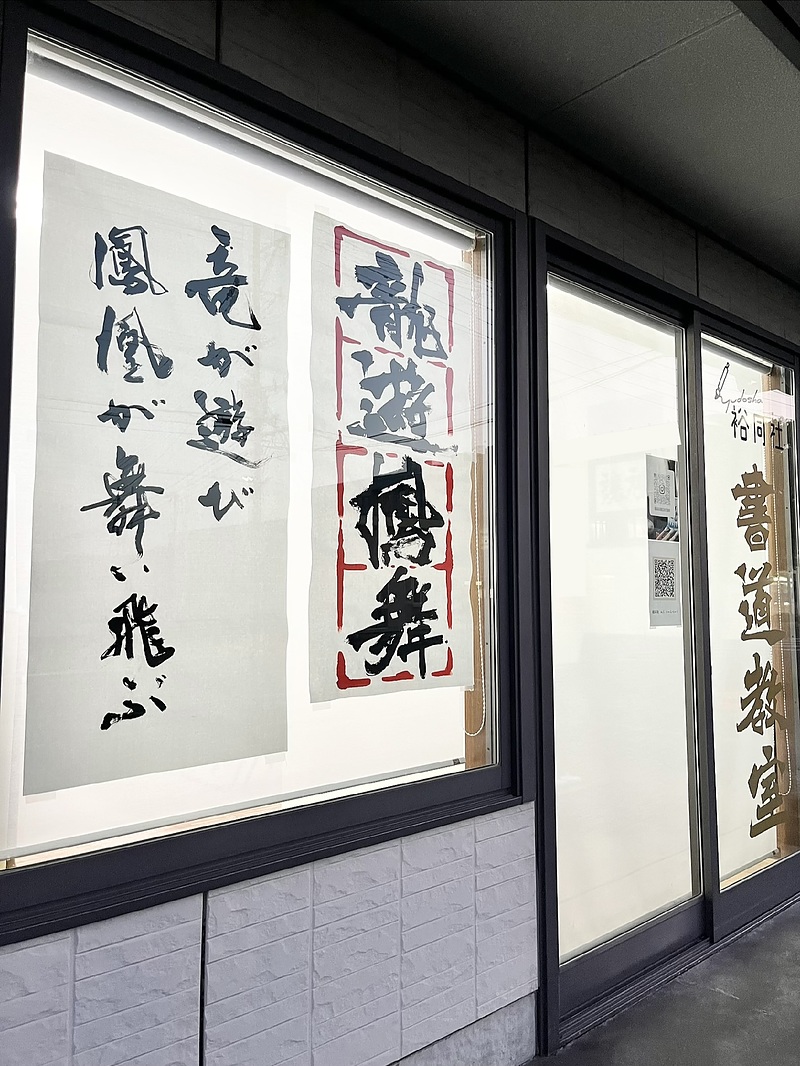 龍遊鳳舞
竜が遊び
鳳凰が舞い飛ぶ
裕同社
書道教室